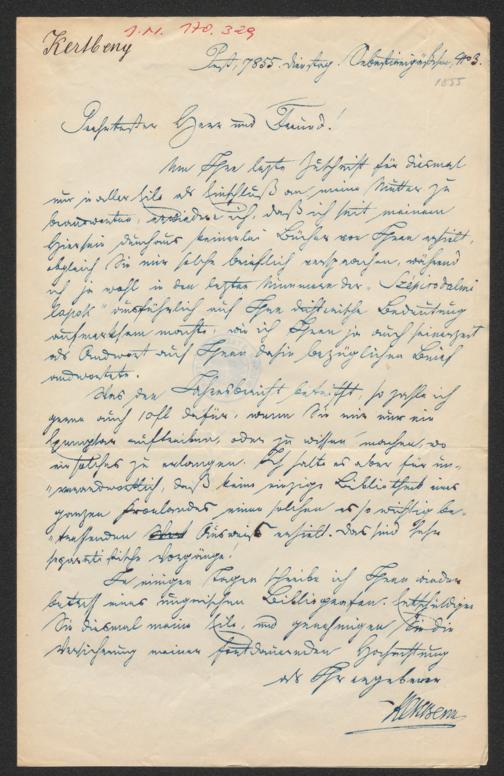 Kertbeny
J.N. 170.329
Pest, 1855. Dienstag. No 3.
1855
Herr und Freund!
Um Ihre letzte Zuschrift für diesmal
nur in aller Eile als Einschluß an meine Mutter zu
beantworten, erwidere ich, daß ich seit meinem
Hiersein durchaus keinerlei Bücher von Ihnen erhielt,
obgleich Sie mir solche brieflich versprachen, während
ich ja wohl in den letzten Nummern der "Szépirodalmi
lapok" ausführlich auf Ihre dichterische Bedeutung
aufmerksam machte, wie ich Ihnen ja auch seinerzeit
als Antwort auf Ihren dafür bezüglichen Brief
andeutete.
Was den Jahresbericht betrifft, so zahle ich
gerne auch 10 fl dafür, wenn Sie mir nur ein
Exemplar auftreiben, oder zu wissen machen, wo
ein solches zu erlangen. Ich halte es aber für un-
verantwortlich, daß keine einzige Bibliothek des
ganzen Kronlandes einen solchen es so wichtig be-
treffenden Ausweis erhielt. Das sind sehr
Vorgänge!
In einigen Tagen schreibe ich Ihnen wieder
betreff eines ungrischen Bibliografen. Entschuldigen
Sie diesmal meine Eile, und genehmigen Sie die
Versicherung meiner fortdauernden Hochachtung
als Ihr ergebener
Kertbeny